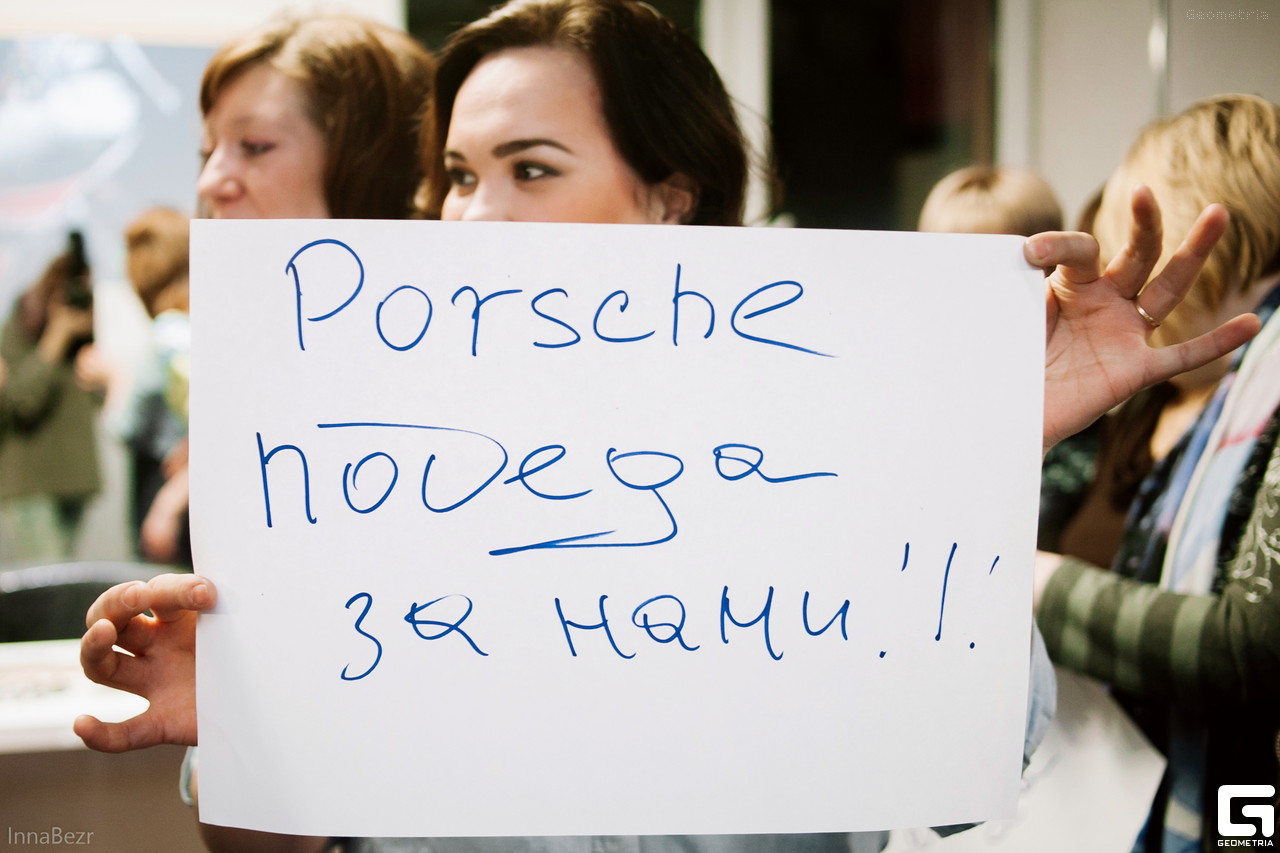 Geometria
Porsche
победа
за нами!!!
InnaBezr
GEOMETRIA